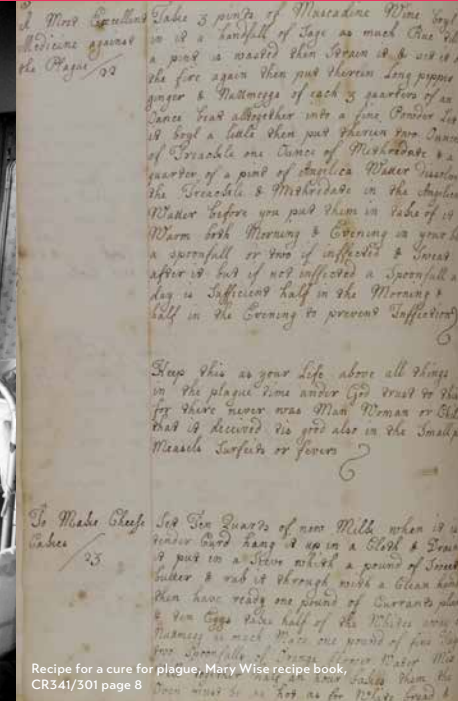 8
A Most Excellent
Medicine against
the Plague
22
Take 3 pints of Muscadine Wine boyl
in it a handfull of Sage as much Rue
a pint is wasted then Strain it & set it
the fire again then put therein Long pepper
ginger & Nuttmeggs of each 3 quarters of an
beat altogether into a fine Powder Let
it boyl a little then put therein two Ounces
of Treackle one Ounce of Methredate & a
quarter of a pint of Angelica Water Dissolve
the Treackle & Mithredate in the Angelica
Water before you put them in take of it
Warm both Morning & Evening in your
a spoonfull or two if inffected & Sweat
after it but if not inffected a Spoonfull a
day is Sufficient half in the Morning &
half in the Evening to prevent Inffection
Keep this as your Life above all things
in the plague time under God trust to this
for there never was Man Woman or
that it deceived tis good also in the Small
Measels Surfeits or fevers
To Make Cheese
Cakes
23
Set Ten Quarts of new Milk when it is
tender Curd hang it up in a Cloth & Drain
it put in a with a pound of Sweet
butter & rub it through with a Clean hand
then have ready one pound of Currants
& ten Eggs take half of the Whites
Nuttmeg as much Mace one pound of fine
two Spoonfulls of Water
half an hour them the
Oven must be as hot as for White bread &
Recipe for a cure for plague, Mary Wise recipe book,
CR341/301 page 8